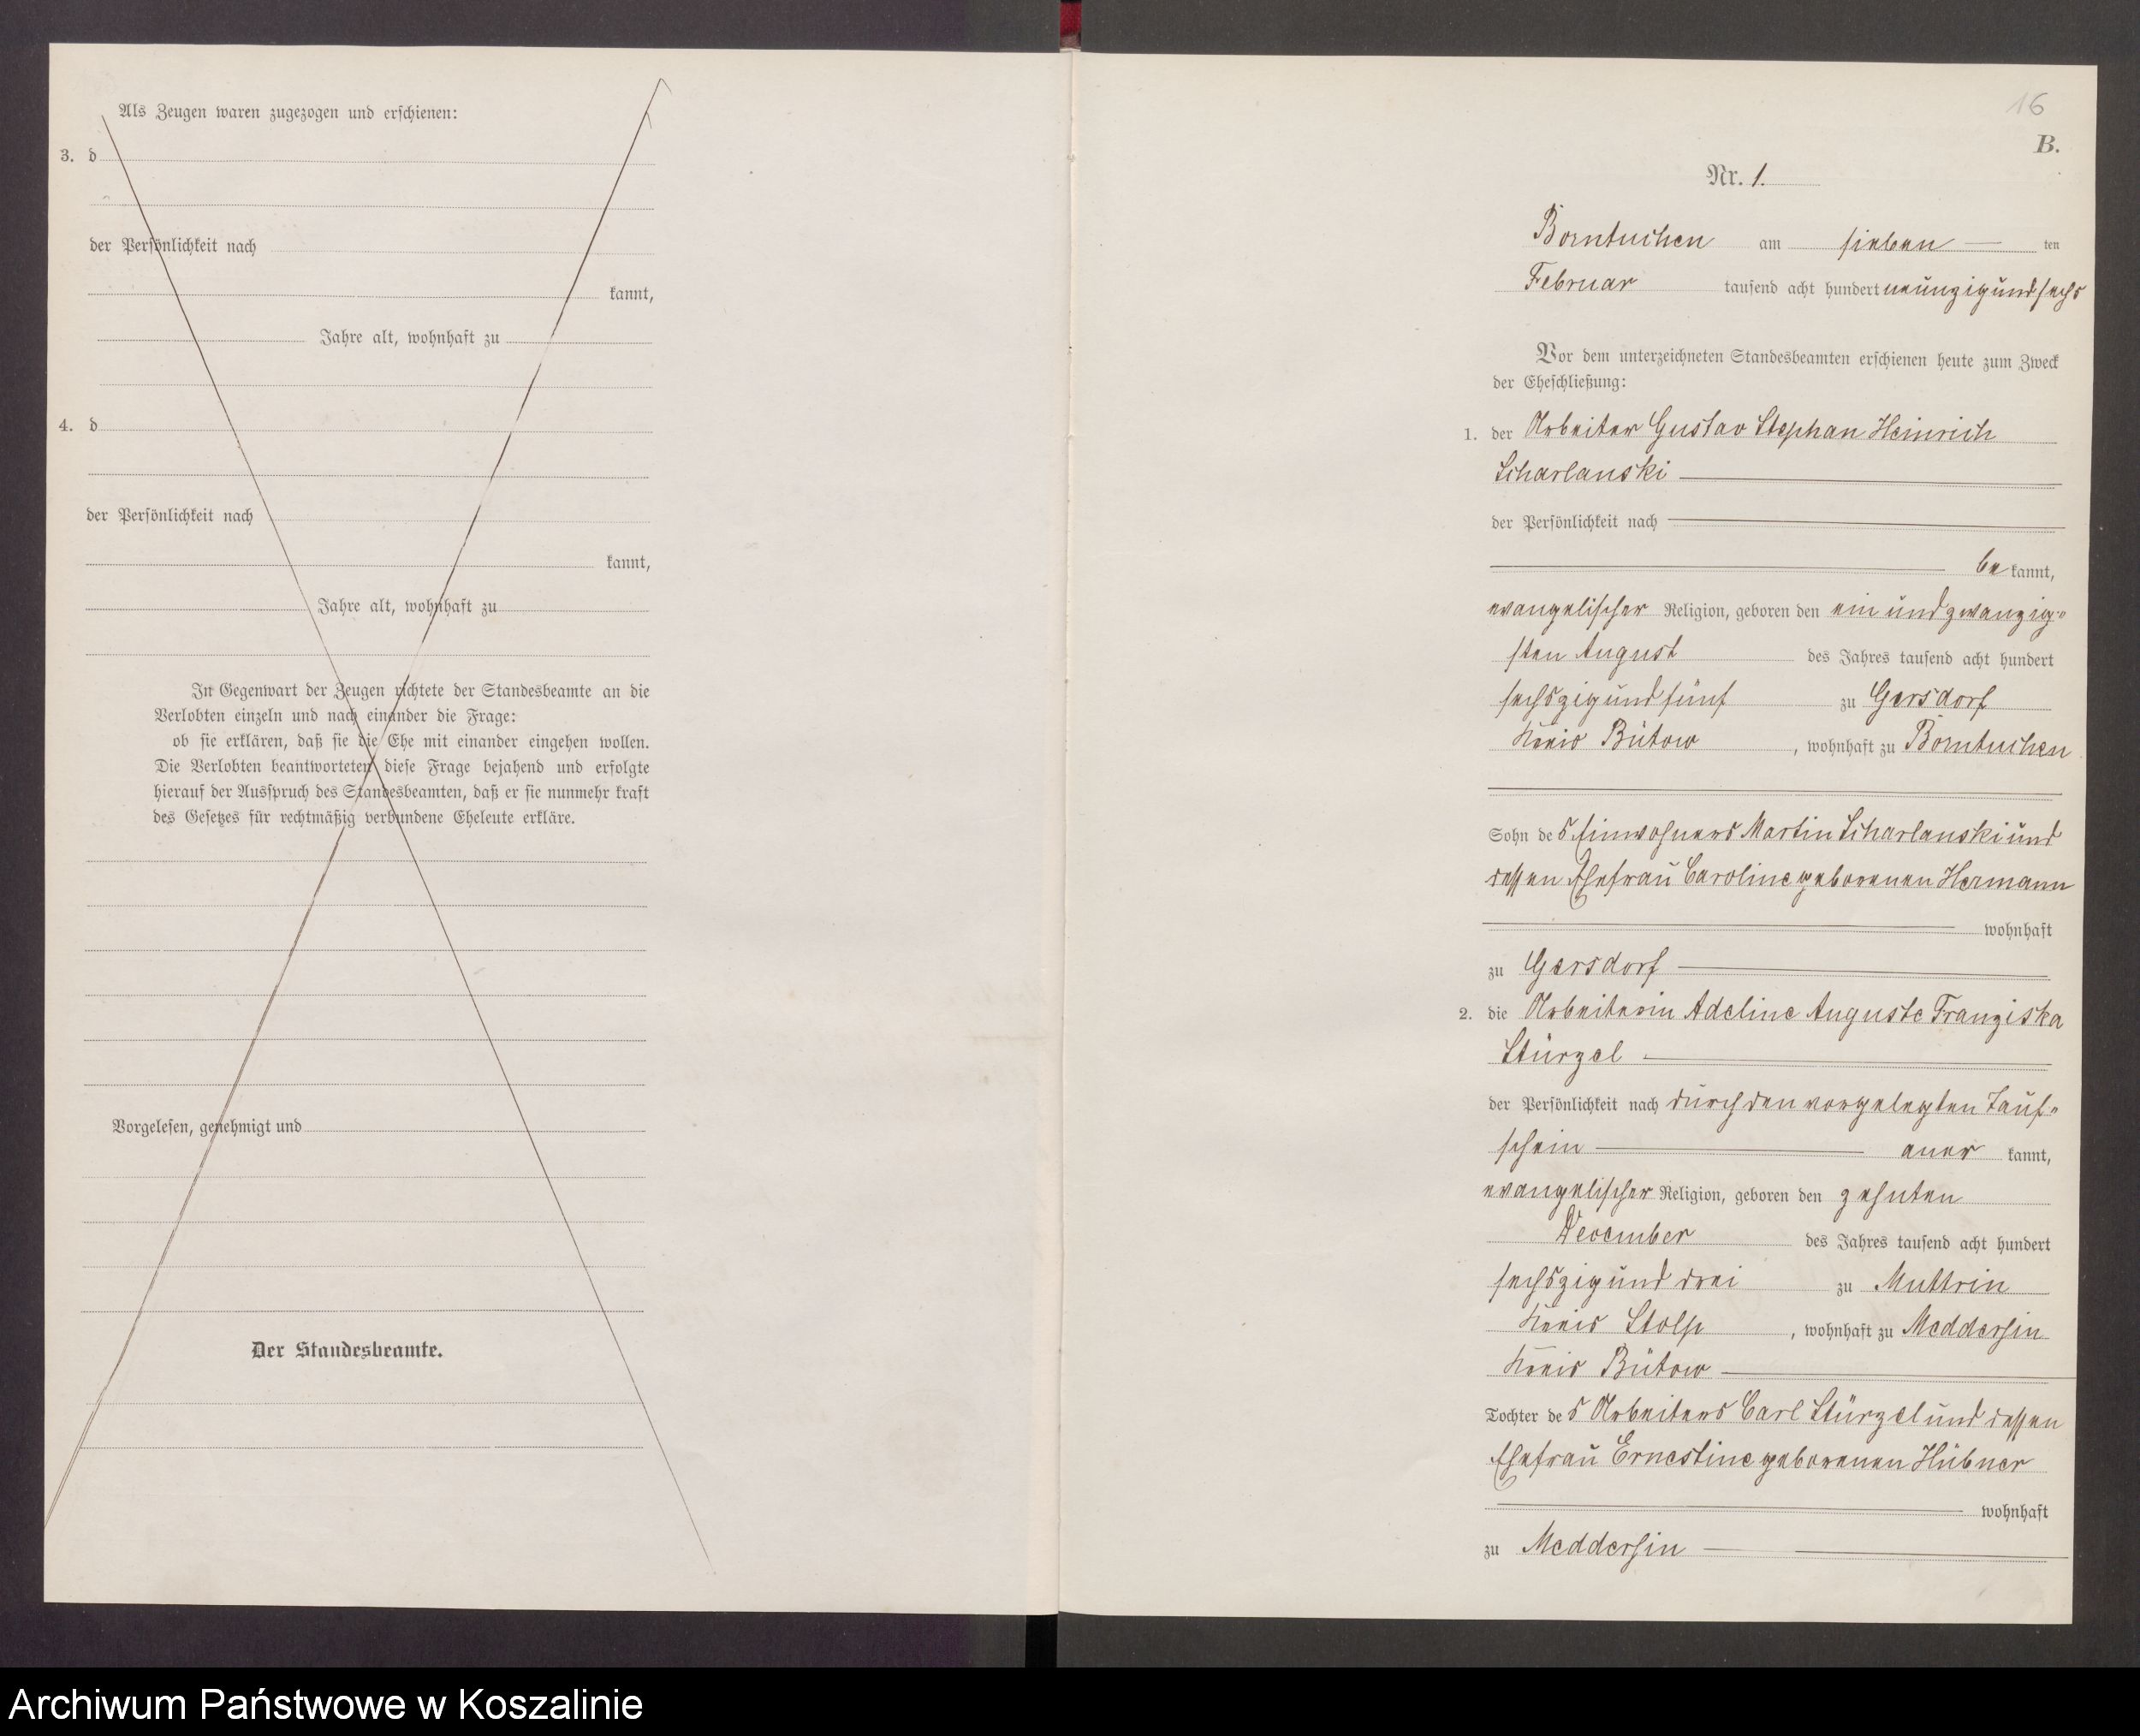 Als Zeugen waren zugezogen und erschienen:
3. d
der Persönlichkeit nach
kannt,
Jahre alt, wohnhaft zu
4. d
der Persönlichkeit nach
kannt,
Jahre alt, wohnhaft zu
In Gegenwart der Zeugen richtete der Standesbeamte an die
Verlobten einzeln und nach einander die Frage:
ob sie erklären, daß sie die Ehe mit einander eingehen wollen.
Die Verlobten beantworteten diese Frage bejahend und erfolgte
hierauf der Ausspruch des Standesbeamten, daß er sie nunmehr kraft
des Gesetzes für rechtmäßig verbundene Eheleute erkläre.
Vorgelesen, genehmigt und
Der Standesbeamte.
16
B.
Nr. 1.
Borntuchen am sieben ten
Februar tausend acht hundert neunzig und sechs
Vor dem unterzeichneten Standesbeamten erschienen heute zum Zweck
der Eheschließung:
1. der Arbeiter Gustav Stephan Heinrich
Scharlanski
der Persönlichkeit nach
be kannt,
evangelischer Religion, geboren den ein und zwanzig-
sten August des Jahres tausend acht hundert
sechszig und fünf zu Gersdorf
Kreis Bütow, wohnhaft zu Borntuchen
Sohn des Einwohners Martin Scharlanski und
dessen Ehefrau Caroline geborenen Hermann
wohnhaft
zu Gersdorf
2. die Arbeiterin Adeline Auguste Franziska
Stürzel
der Persönlichkeit nach durch den vorgelegten Tauf-
schein aner kannt,
evangelischer Religion, geboren den zehnten
December des Jahres tausend acht hundert
sechszig und drei zu Muttrin
Kreis Stolp, wohnhaft zu Meddersin
Kreis Bütow
Tochter des Arbeiters Carl Stürzel und dessen
Ehefrau Ernestine geborenen Hübner
wohnhaft
zu Meddersin
Archiwum Państwowe w Koszalinie